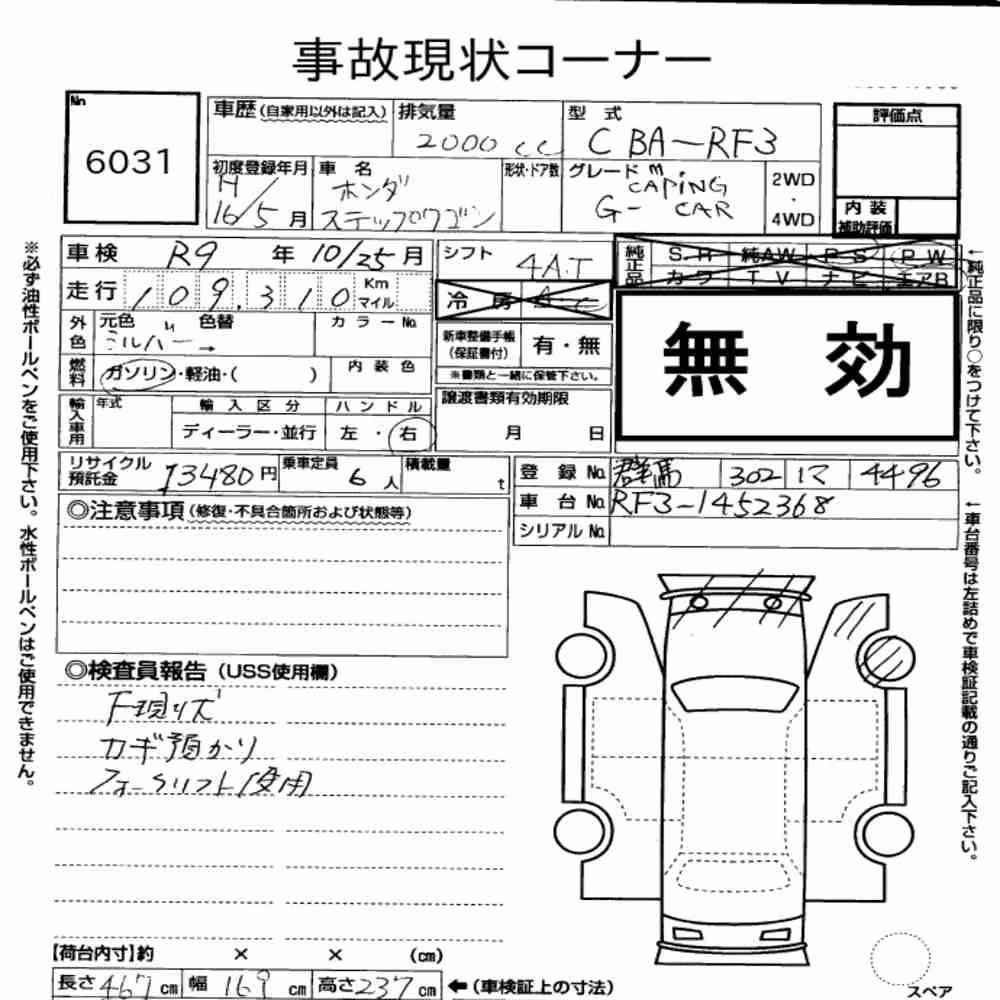 事故現状コーナー
No
6031
車歴(自家用以外は記入)
排気量
2000cc
型式
CBA-RF3
評価点
初度登録年月
H
16/5月
車名
ホンダ
ステップワゴン
形状・ドア数
グレード
CAPING
G- CAR
2WD
・
4WD
内装
補助評価
車検 R9年10/25月
シフト
4AT
純正品
S.R 純AW P S P W
カワ T V ナビ エアB
走行 109,310 Km マイル
冷房 A C
無効
外色
元色 色替
シルバー →
カラーNo.
新車整備手帳
(保証書付)
有・無
※書類と一緒に保管下さい。
燃料
ガソリン・軽油・( )
内装色
譲渡書類有効期限
月 日
輸入車用
年式
輸入区分
ディーラー・並行
ハンドル
左・右
リサイクル
預託金
13480円
乗車定員
6人
積載量
t
登録No. 群馬 302 4496
車台No. RF3-1452368
シリアルNo.
◎注意事項(修復・不具合箇所および状態等)
◎検査員報告(USS使用欄)
下現リズ
カギ預かり
フォークリフト使用
【荷台内寸】約 × × (cm)
長さ467cm 幅169cm 高さ237cm ←(車検証上の寸法)
スペア
※必ず油性ボールペンをご使用下さい。水性ボールペンはご使用できません。
←純正品に限り○をつけて下さい。
←車台番号は左詰めで車検証記載の通りご記入下さい。